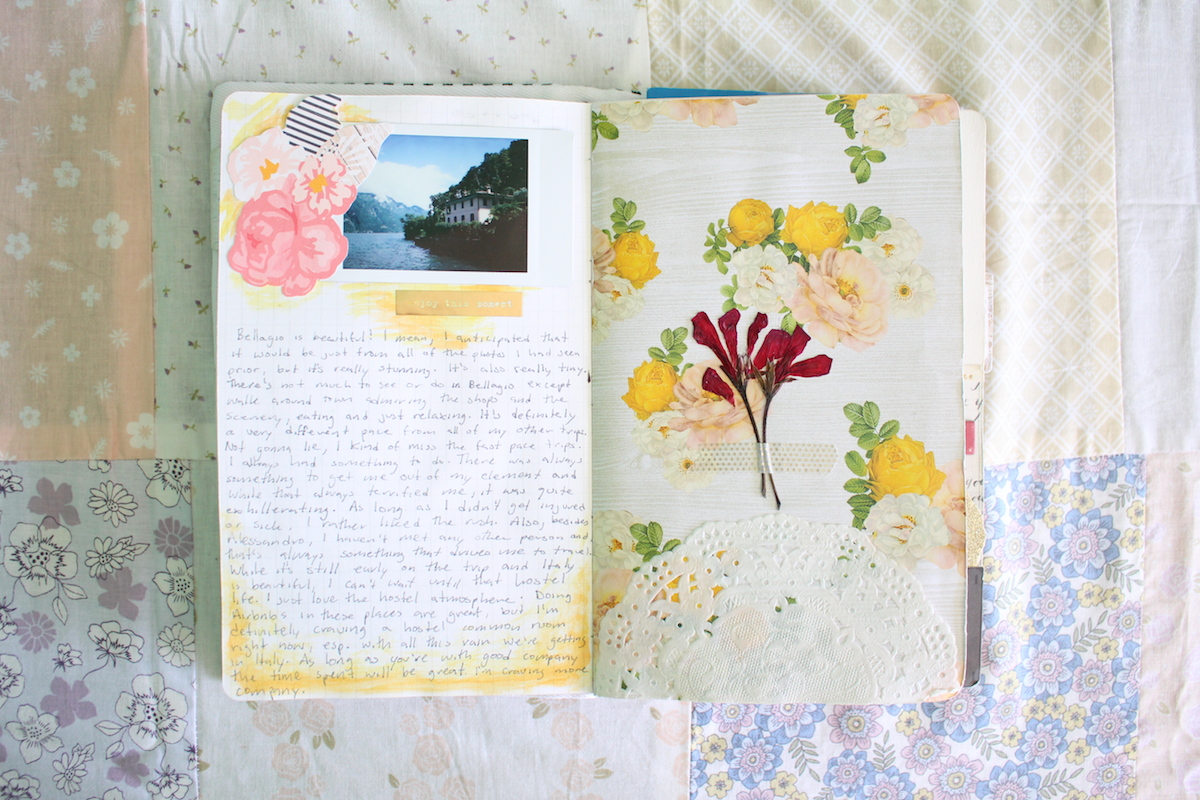 enjoy this moment
Bellagio is beautiful! I mean, I anticipated that
it would be just from all of the photos I had seen
prior, but it's really stunning. It's also really tiny.
There's not much to see or do in Bellagio except
walk around town admiring the shops and the
scenery, eating and just relaxing. It's definitely
a very different pace from all of my other trips.
Not gonna lie, I kind of miss the fast pace trips.
I always had something to do. There was always
something to get me out of my element and
while that always terrified me, it was quite
exhilerating. As long as I didn't get injured
or sick, I rather liked the rush. Also, besides
Alessandro, I haven't met any other person and
that's always something that drives me to travel.
While it's still early on the trip and Italy
is beautiful, I can't wait until that hostel
life. I just love the hostel atmosphere. Doing
Airbnbs in these places are great, but I'm
definitely craving a hostel common room
right now, esp. with all this rain we're getting
in Italy. As long as you're with good company
the time spent will be great. I'm craving more
company.